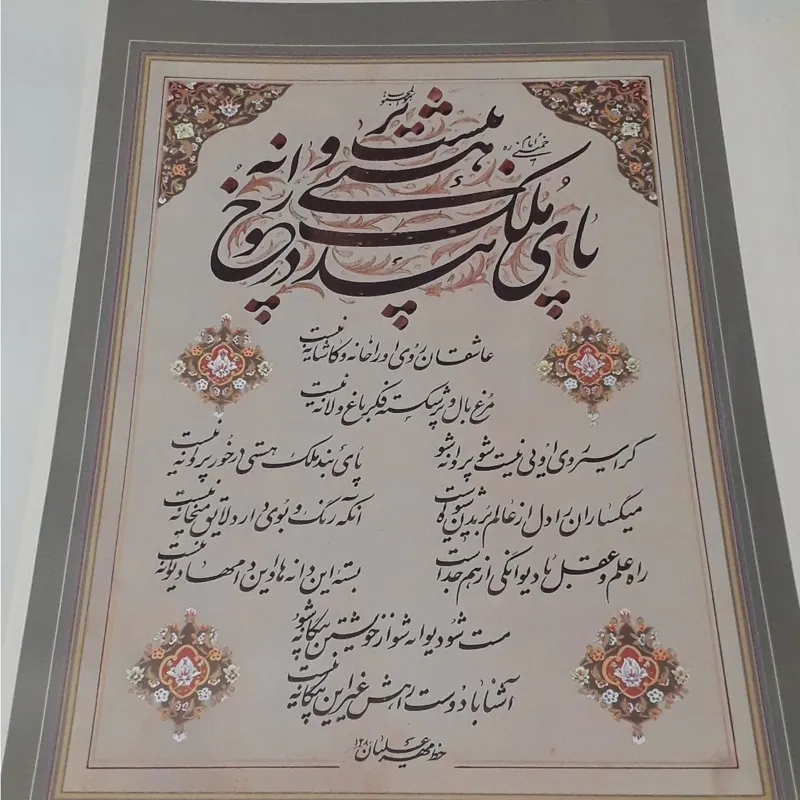 امام خمینی ره
پای بند ملک هستی در خور پروانه نیست
عاشقان روی او را خانه و کاشانه نیست
مرغ بال و پر شکسته فکر باغ و لانه نیست
گر اسیر روی اویی نیست شو پروانه شو پای بند ملک هستی در خور پروانه نیست
میگساران را دل از عالم بریدن شیوه است آنکه رنگ و بوی دارد لایق میخانه نیست
راه علم و عقل با دیوانگی از هم جداست بسته این دانه ها و این دامها دیوانه نیست
مست شو دیوانه شو از خویشتن بیگانه شو
آشنا با دوست راهش غیر این بیگانه نیست
خط